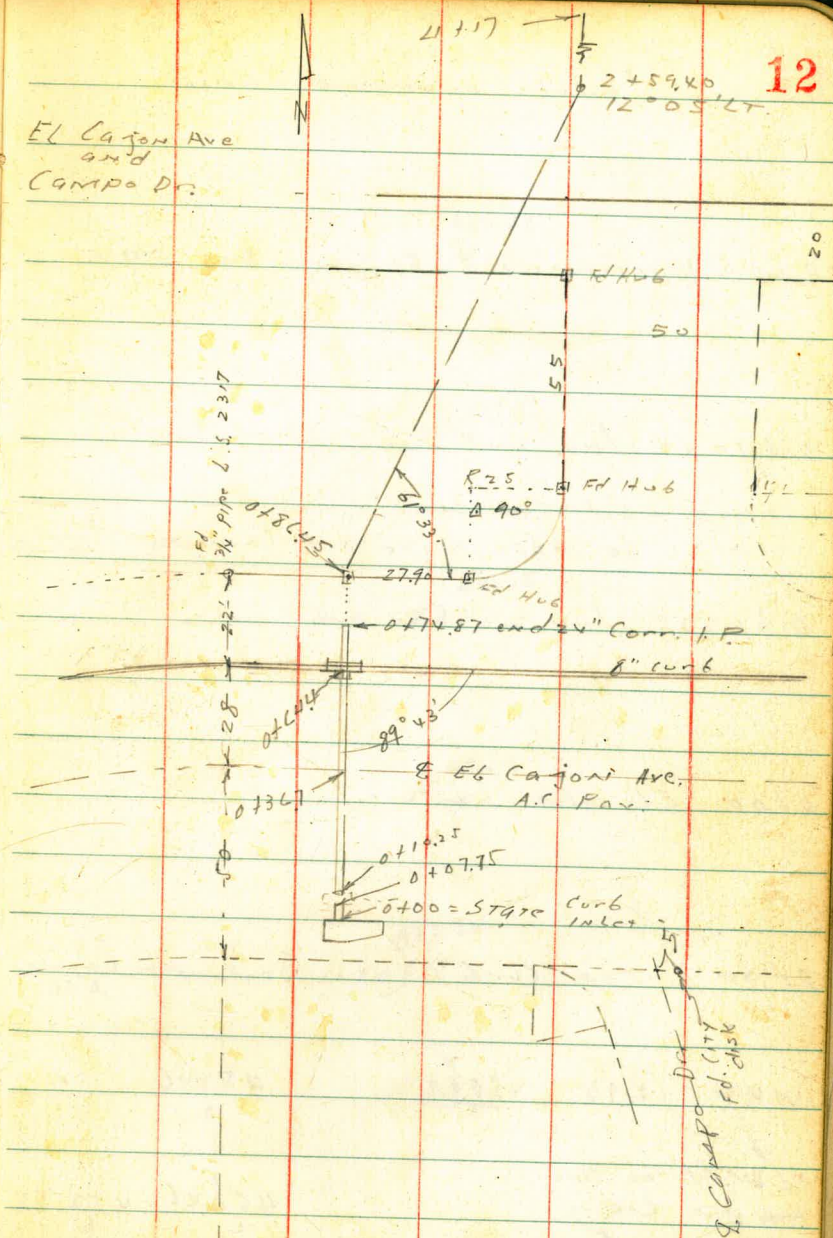 4+17
12
2+59.40
12°05' LT
El Cajon Ave
and
Campo Dr.
N
20
Fd Hub
50
55
Fd
3/4" Pipe L.S. 2317
R 25
Fd Hub
Δ 90°
61°33'
0+86.45
27.90
Fd Hub
22'
0+74.87 end 24" Corr. I.P.
8" curb
28
0+64.4
89°43'
℄ El Cajon Ave.
A.C. Pav.
0+36.7
50
0+10.25
0+07.75
0+00 = State Curb
Inlet
5'
℄ Campo Dr
Fd. City
disk